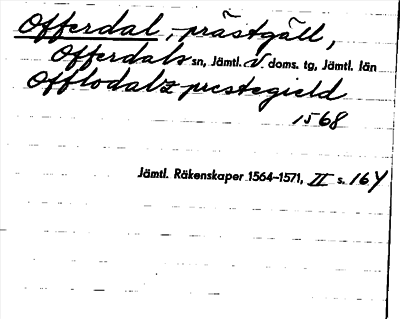 Offerdal, prästgäll,
Offerdals sn, Jämtl. V. doms. tg, Jämtl. län
Offlodalz prestegield
1568
Jämtl. Räkenskaper 1564–1571, II s. 164